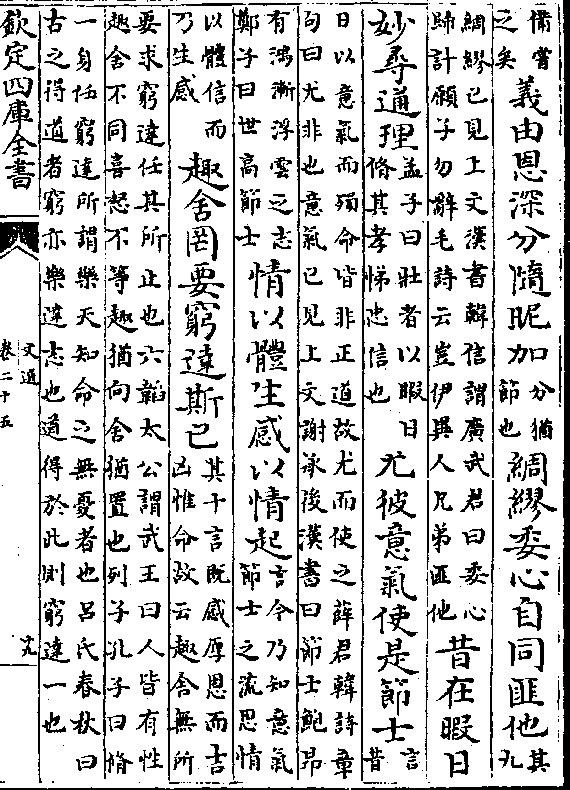 備嘗
之矣
義由恩深分隨昵加
分猶
節也
綢繆委心自同匪他
其
九
綢繆已見上文漢書韓信謂廣武君曰委心
歸計願子勿辭毛詩云豈伊異人兄弟匪他
昔在暇日
妙尋通理
孟子曰壯者以暇日
脩其孝悌忠信也
尤彼意氣使是節士
言
昔
日以意氣而殞命皆非正道故尤而使之薛君韓詩章
句曰尤非也意氣已見上文謝承後漢書曰節士鮑昂
有鴻漸浮雲之志
鄭子曰世高節士
情以體生感以情起
言今乃知意氣
節士之流思情
以體信而
乃生感
趣舍罔要窮達斯已
其十言既感厚恩而吉
凶惟命故云趣舍無所
要求窮達任其所止也六韜太公謂武王曰人皆有性
趣舍不同喜怒不等趣猶向舍猶置也列子孔子曰脩
一身任窮達所謂樂天知命之無憂者也呂氏春秋曰
古之得道者窮亦樂達志也道得於此則窮達一也
欽定四庫全書
文選
卷二十五
十九